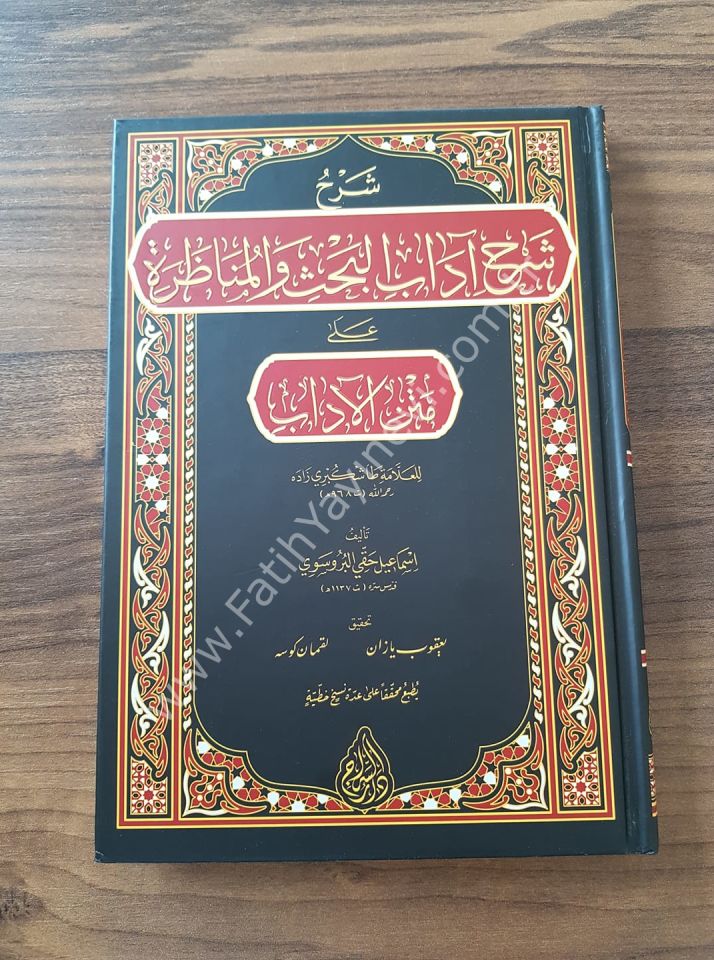 شَرْحُ
شَرْحِ آدَابِ الْبَحْثِ وَالْمُنَاظَرَةِ
عَلَى
مَتْنِ الْآدَابِ
لِلْعَلَّامَة طَاشْكُبْرِي زَادَه
رحمه الله (ت ٩٦٨ هـ)
تَألِيفُ
إِسْمَاعِيل حَقِّي الْبُرُوسَوِي
قدّس سرّه (ت ١١٣٧ هـ)
تحقيق
يعقوب يازان لقمان كوسه
يُطْبَعُ مُحَقَّقاً عَلى عِدَّةِ نُسَخٍ خَطِّيَّةٍ
دار السراج
www.FatihYayinevi.com